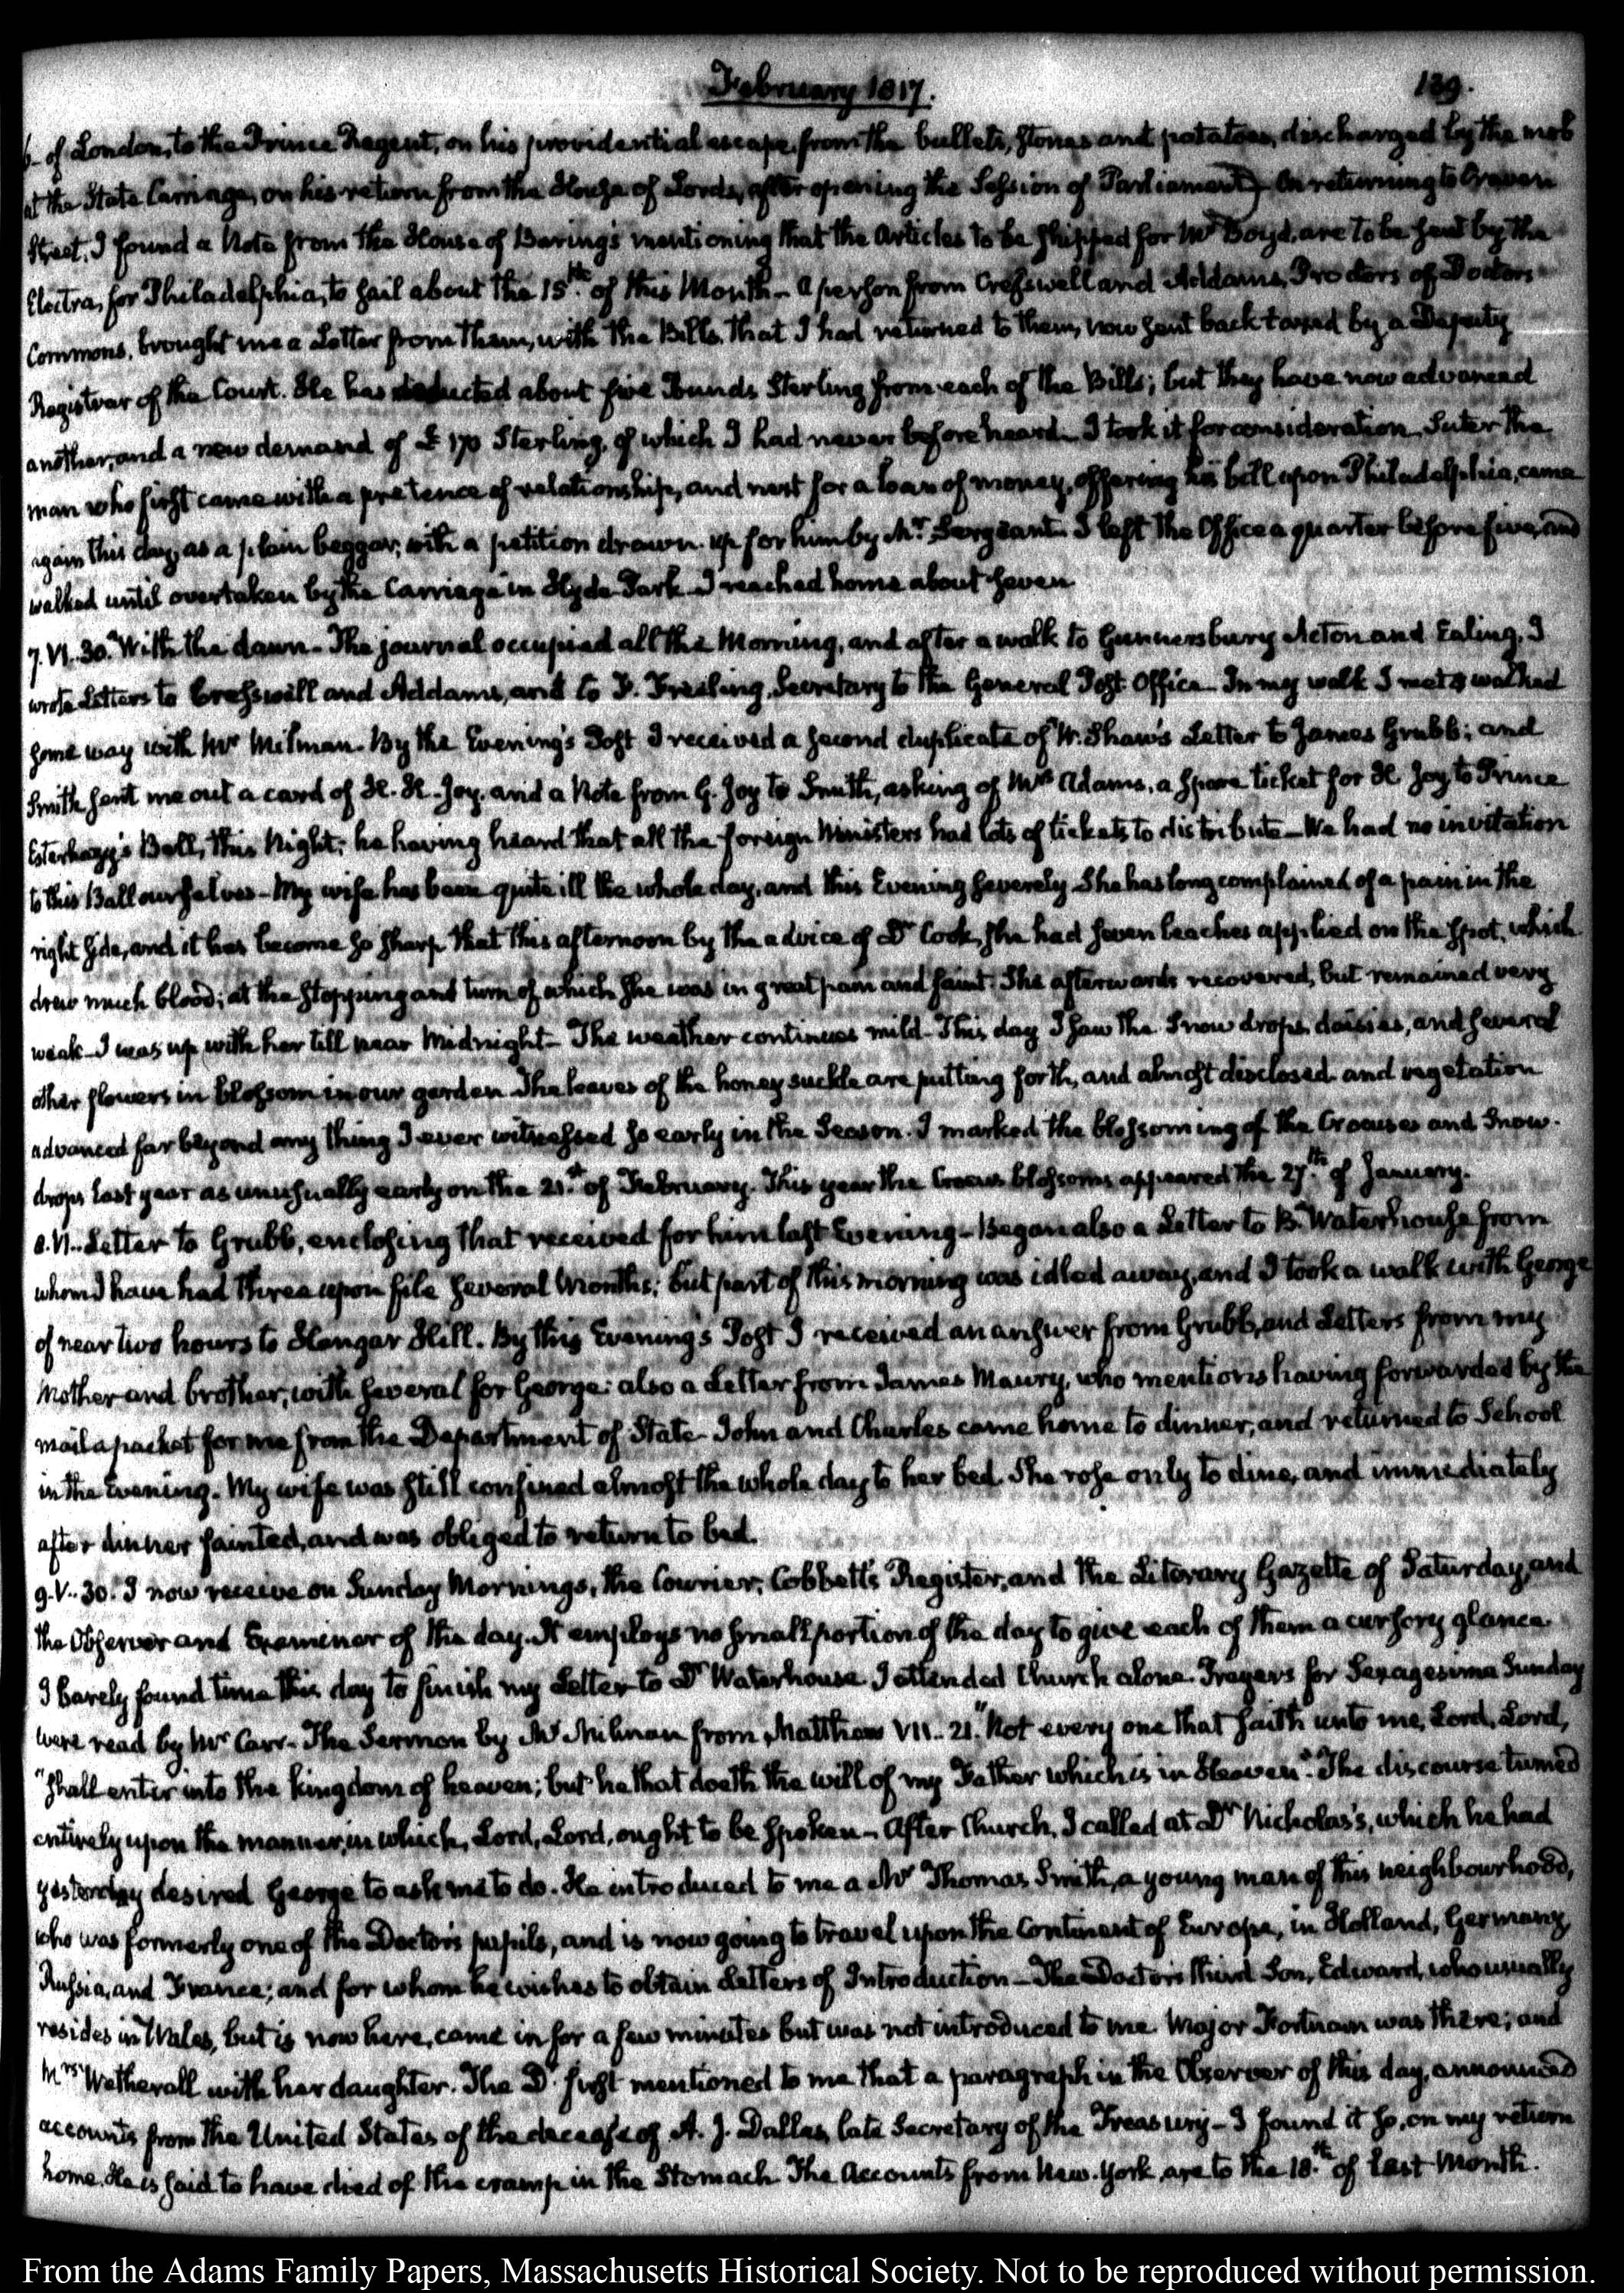 February 1817.
139.
of London, to the Prince Regent, on his providential escape from the bullets, stones and potatoes, discharged by the mob
at the State Carriage, on his return from the House of Lords, after opening the Session of Parliament) On returning to Craven
Street, I found a Note from the House of Baring's mentioning that the Articles to be shipped for Mr Boyd, are to be sent by the
Electra, for Philadelphia, to sail about the 15th. of this Month— A person from Cresswell and Addams, Proctors of Doctors
Commons, brought me a Letter from them, with the Bills, that I had returned to them, now sent back taxed by a Deputy
Registrar of the Court. He has deducted about five Pounds Sterling from each of the Bills; but they have now advanced
another, and a new demand of £170 Sterling, of which I had never before heard— I took it for consideration. Suter the
man who first came with a pretence of relationship, and next for a loan of money, offering his bill upon Philadelphia, came
again this day, as a plain beggar; with a petition drawn up for him by Mr. Sergeant— I left the Office a quarter before five, and
walked until overtaken by the Carriage in Hyde-Park— I reached home about seven.
7. VI. 30. With the dawn— The journal occupied all the Morning, and after a walk to Gunnersbury Acton and Ealing, I
wrote Letters to Cresswell and Addams, and to F. Freeling, Secretary to the General Post-Office— In my walk I met & walked
some way with Mr Milman— By the Evening's Post I received a second duplicate of W. Shaw's Letter to James Grubb; and
Smith sent me out a card of H. H. Joy, and a Note from G. Joy to Smith, asking of Mrs Adams, a spare ticket for H Joy to Prince
Esterhazy's Ball, this Night; he having heard that all the foreign Ministers had lots of tickets to distribute— We had no invitation
to this Ball ourselves— My wife has been quite ill the whole day, and this Evening severely— She has long complained of a pain in the
right side, and it has become so sharp that this afternoon by the advice of Dr Cook, she had seven leaches applied on the spot, which
drew much blood; at the stopping and turn of which she was in great pain and faint. She afterwards recovered, but remained very
weak— I was up with her till near Midnight— The weather continues mild— This day I saw the Snow drops, daisies, and several
other flowers in blossom in our garden— The leaves of the honey suckle are putting forth, and almost disclosed and vegetation
advanced far beyond any thing I ever witnessed so early in the Season. I marked the blossoming of the Crocuses and Snow-
drops last year as unusually early on the 21st. of February. This year the Crocus blossoms appeared the 27th. of January.
8. VI.. Letter to Grubb, enclosing that received for him last Evening— Began also a Letter to B. Waterhouse from
whom I have had three upon file several Months; but part of this morning was idled away, and I took a walk with George
of near two hours to Hangar Hill. By this Evening's Post I received an answer from Grubb, and Letters from my
Mother and brother, with several for George: also a Letter from James Maury, who mentions having forwarded by the
mail a packet for me from the Department of State— John and Charles came home to dinner, and returned to School
in the Evening. My wife was still confined almost the whole day to her bed. She rose only to dine, and immediately
after dinner fainted, and was obliged to return to bed.
9. V.. 30. I now receive on Sunday Mornings, the Courier, Cobbett's Register, and the Literary Gazette of Saturday, and
the Observer and Examiner of the day. It employs no small portion of the day to give each of them a cursory glance
I barely found time this day to finish my Letter to Dr Waterhouse. I attended Church alone. Prayers for Sexagesima Sunday
were read by Mr Carr— The Sermon by Mr Milman from Matthew VII.. 21. "Not every one that saith unto me, Lord, Lord,
"shall enter into the kingdom of heaven; but he that doeth the will of my Father which is in Heaven." The discourse turned
entirely upon the manner, in which, Lord, Lord, ought to be spoken— After Church, I called at Dr Nicholas's, which he had
yesterday desired George to ask me to do. He introduced to me a Mr Thomas Smith, a young man of this neighbourhood,
who was formerly one of the Doctor's pupils, and is now going to travel upon the Continent of Europe, in Holland, Germany,
Russia, and France; and for whom he wishes to obtain Letters of Introduction— The Doctor's third Son, Edward, who usually
resides in Wales, but is now here, came in for a few minutes but was not introduced to me. Major Fortnam was there; and
Mrs Wetherall with her daughter. The Dr first mentioned to me that a paragraph in the Observer of this day, announced
accounts from the United States of the decease of A. J. Dallas, late Secretary of the Treasury— I found it so, on my return
home. He is said to have died of the cramp in the Stomach— The Accounts from New-York, are to the 18th. of last Month.
From the Adams Family Papers, Massachusetts Historical Society. Not to be reproduced without permission.